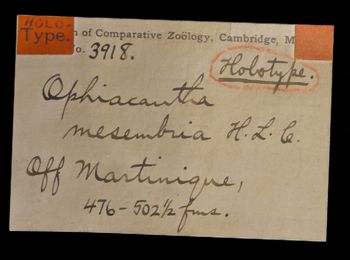 HOLO-
Type.
m of Comparative Zoölogy, Cambridge, M
No. 3918.
Holotype.
Ophiacantha
mesembria H. L. C.
Off Martinique,
476-502½ fms.